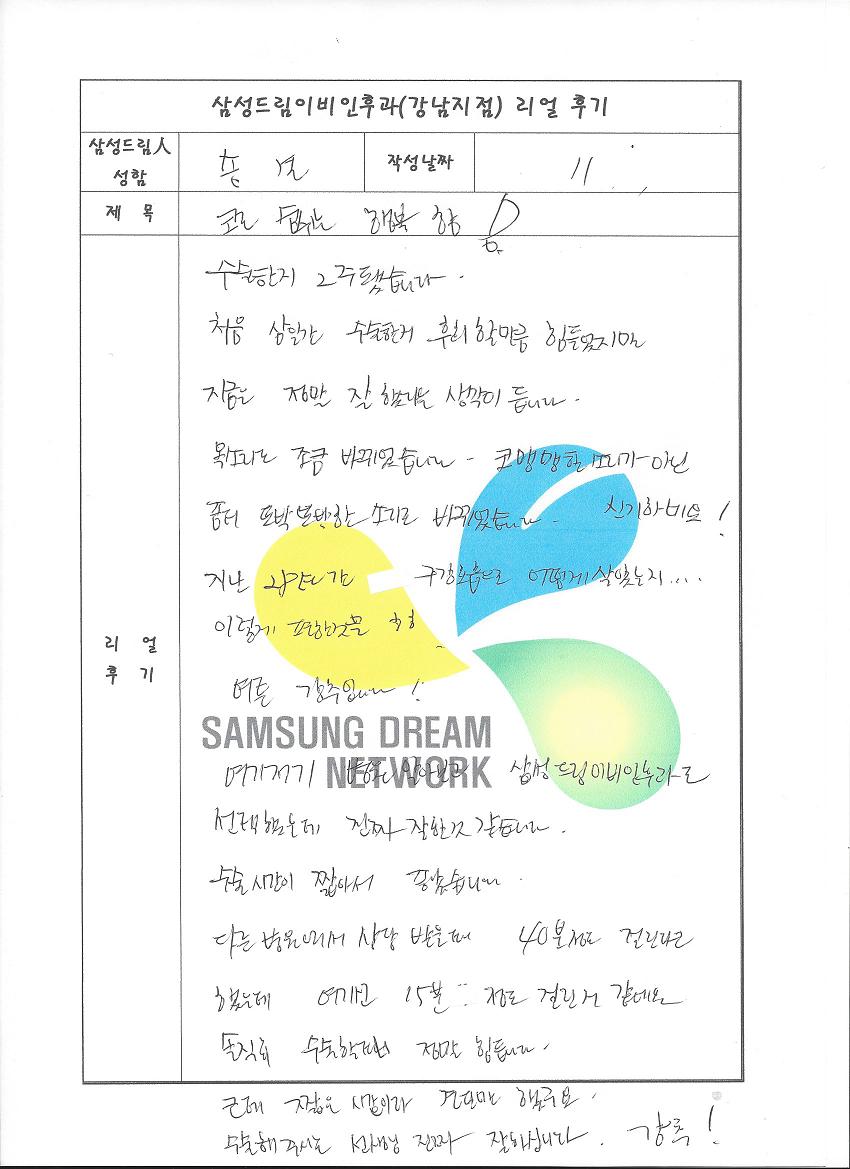 삼성드림이비인후과(강남지점) 리얼 후기
삼성드림人
성함
작성날짜
11
제 목
코로 숨쉬는 행복 향
수술한지 2주됐습니다.
처음 삼일간 수술한거 후회할만큼 힘들었지만
지금은 정말 잘했다는 생각이 듭니다.
목소리도 조금 바뀌었습니다. 코맹맹한 소리가 아닌
좀더 또박또박한 소리로 바뀌었습니다. 신기하네요!
지난 구강호흡으로 어떻게 살았는지....
이렇게 편한것을 ㅎㅎ
강추입니다!
SAMSUNG DREAM
NETWORK
여기저기 알아보고 삼성드림이비인후과로
선택했는데 진짜 잘한것 같습니다.
수술시간이 짧아서 좋았습니다.
다른병원에서 상담 받을때 40분정도 걸린다고
했는데 여기는 15분 정도 걸린거 같네요
솔직히 수술할때 정말 힘듭니다.
근데 짧은 시간이라 견딜만 했구요.
수술해주시는 선생님 진짜 잘하십니다. 강추!
리 얼
후 기